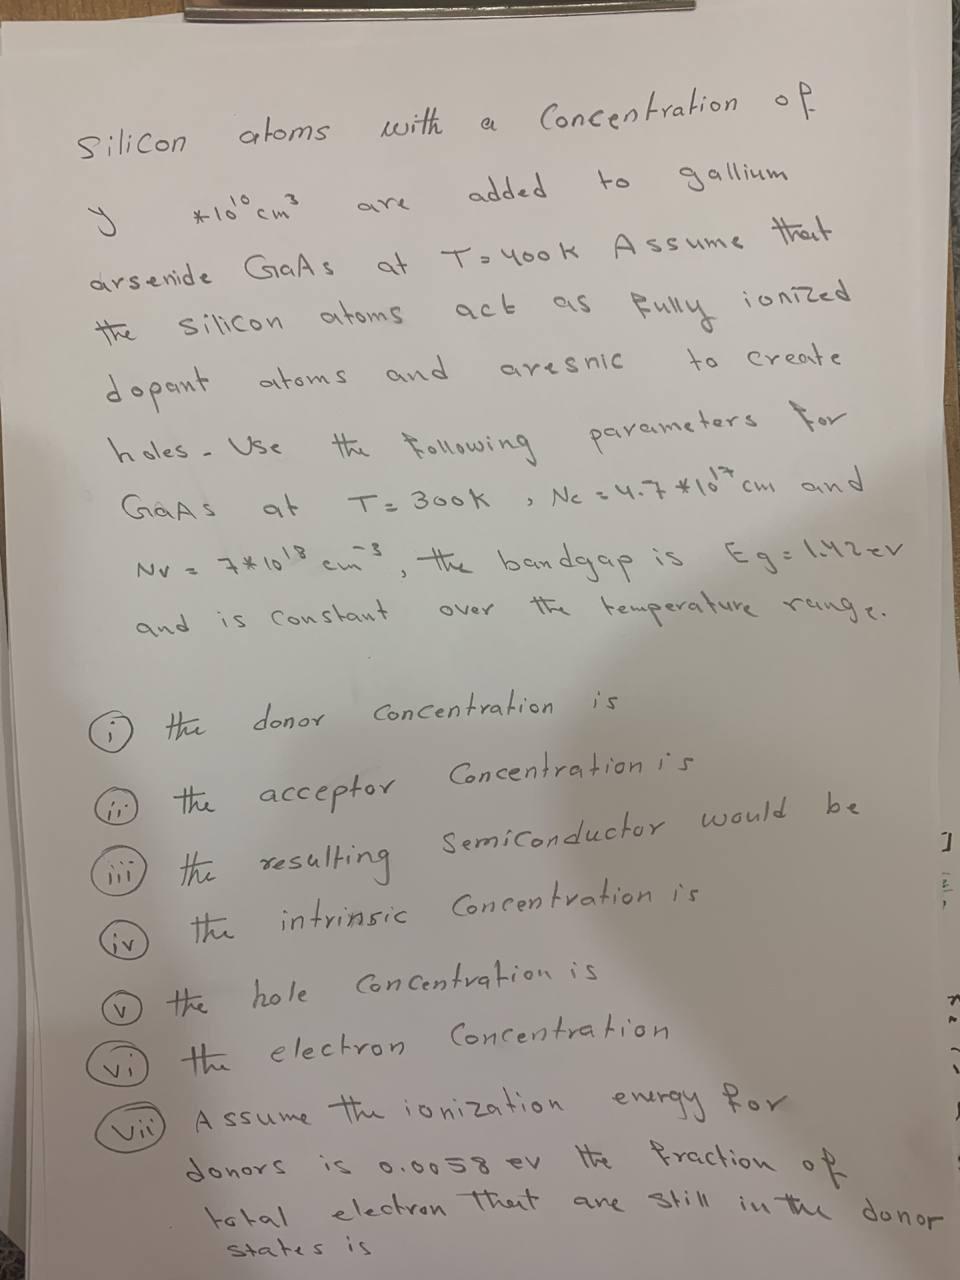 Silicon atoms with a Concentration of
y *10¹⁰cm³ are added to gallium
arsenide GaAs at T=400K Assume that
the silicon atoms act as fully ionized
dopant atoms and aresnic to create
holes. Use the following parameters for
GaAs at T=300K, Nc=4.7*10¹⁷cm and
Nv=7*10¹⁸cm⁻³, the bandgap is Eg=1.42ev
and is constant over the temperature range.
i the donor concentration is
ii the acceptor Concentration is
iii the resulting semiconductor would be
iv the intrinsic Concentration is
v the hole concentration is
vi the electron Concentration
vii Assume the ionization energy for
donors is 0.0058 ev the fraction of
total electron that are still in the donor
states is